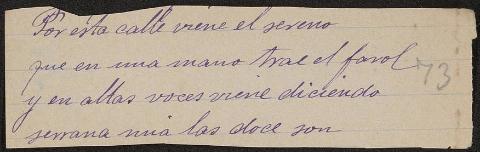 Por esta calle viene el sereno
que en una mano trae el farol
73
y en altas voces viene diciendo
serrana mia las doce son